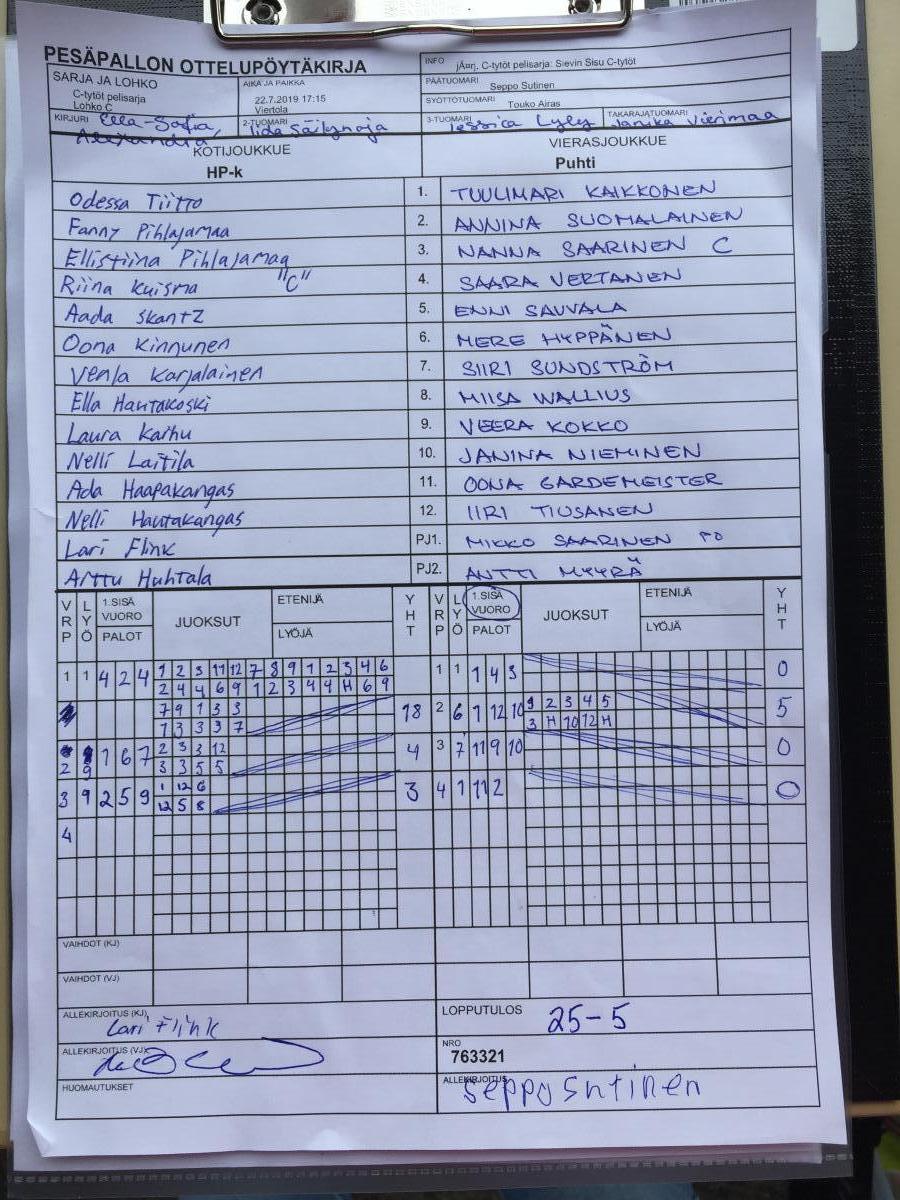 PESÄPALLON OTTELUPÖYTÄKIRJA
INFO jÄ¤rj. C-tytöt pelisarja: Sievin Sisu C-tytöt
SARJA JA LOHKO C-tytöt pelisarja Lohko C
AIKA JA PAIKKA 22.7.2019 17:15 Viertola
PÄÄTUOMARI Seppo Sutinen
SYÖTTÖTUOMARI Touko Airas
KIRJURI Ella-Sofia, Alexandra
2-TUOMARI Iida Säilynoja
3-TUOMARI Jessica Lyly
TAKARAJATUOMARI Janika Vierimaa
KOTIJOUKKUE VIERASJOUKKUE
HP-k Puhti
Odessa Tiitto 1. TUULIMARI KAIKKONEN
Fanny Pihlajamaa 2. ANNINA SUOMALAINEN
Ellistiina Pihlajamaa 3. NANNA SAARINEN C
Riina Kuisma "C" 4. SAARA VERTANEN
Aada Skantz 5. ENNI SAUVALA
Oona Kinnunen 6. MERE HYPPÄNEN
Venla Karjalainen 7. SIIRI SUNDSTRÖM
Ella Hautakoski 8. MIISA WALLIUS
Laura Karhu 9. VEERA KOKKO
Nelli Laitila 10. JANINA NIEMINEN
Ada Haapakangas 11. OONA GARDEMEISTER
Nelli Hautakangas 12. IIRI TIUSANEN
Lari Flink PJ1. MIKKO SAARINEN
Arttu Huhtala PJ2. ANTTI MYYRÄ
VRP LYÖ 1.SISÄ VUORO PALOT JUOKSUT ETENIJÄ LYÖJÄ YHT VRP LYÖ 1.SISÄ VUORO PALOT JUOKSUT ETENIJÄ LYÖJÄ YHT
1 1 4 2 4 1 2 3 11 12 7 8 9 1 2 3 4 6 1 1 1 4 3 0
2 4 4 6 9 1 2 3 4 4 H 6 9
7 9 1 3 3 18 2 6 1 12 10 9 2 3 4 5 5
1 3 3 3 7 3 H 10 12 H
2 9 1 6 7 2 3 3 12 4 3 7 11 9 10 0
3 3 5 5
3 9 2 5 9 1 12 6 3 4 1 1 12 0
12 5 8
4
VAIHDOT (KJ)
VAIHDOT (VJ)
ALLEKIRJOITUS (KJ) Lari Flink
LOPPUTULOS 25-5
ALLEKIRJOITUS (VJ)
NRO 763321
HUOMAUTUKSET
ALLEKIRJOITUS Seppo Sutinen